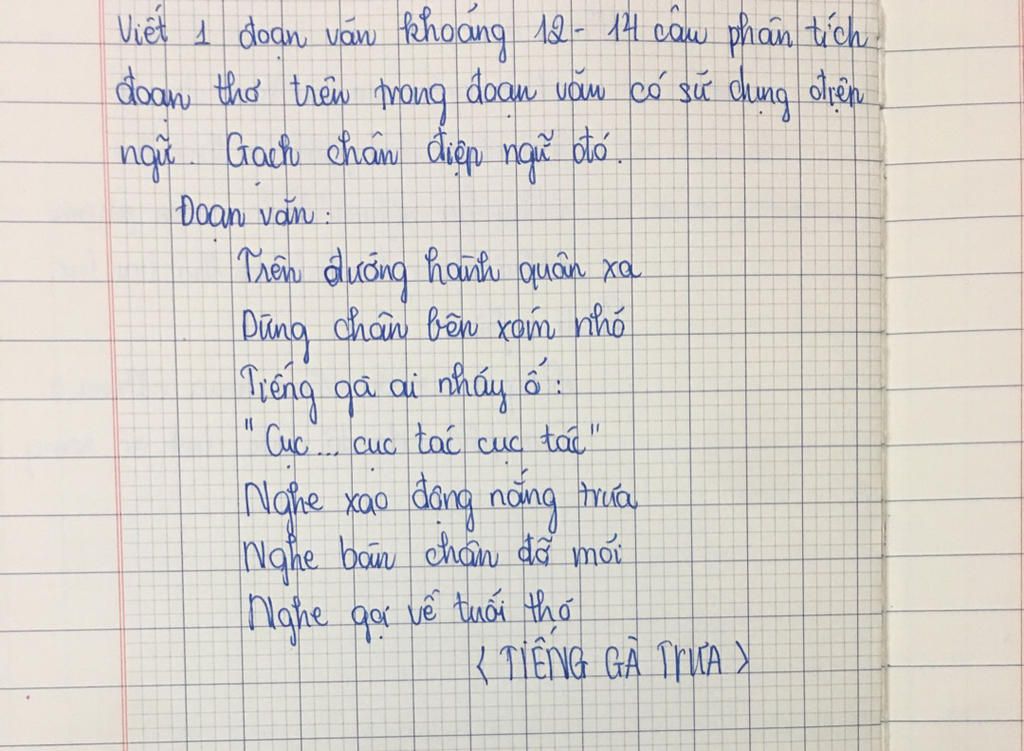 Viết 1 đoạn văn khoảng 12 - 14 câu phân tích
đoạn thơ trên trong đoạn văn có sử dụng điện
ngữ. Gạch chân điệp ngữ đó.
Đoạn văn:
Trên đường hành quân xa
Dừng chân bên xóm nhỏ
Tiếng gà ai nhảy ổ:
"Cục... cục tác cục tác"
Nghe xao động nắng trưa
Nghe bàn chân đỡ mỏi
Nghe gọi về tuổi thơ
< TIẾNG GÀ TRƯA >